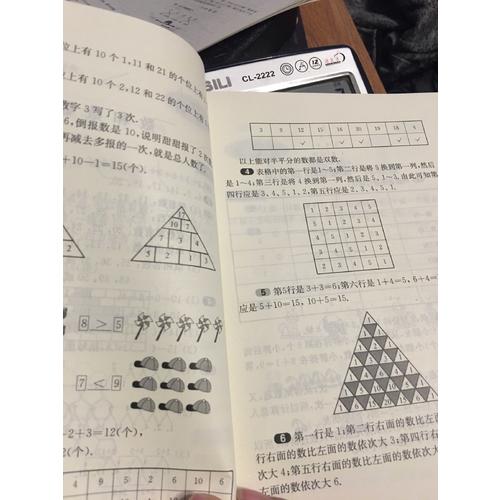 BILI CL-2222
位上有 10 个 1,11 和 21 的个位上有
位上有 10 个 2,12 和 22 的个位上有
数字 3 写了 3 次.
6,倒报数是 10,说明甜甜报了 2
再减去多报的一次,就是总人数了.
+10-1=15(个).
17
10 7
7 3 4
5 2 1 3
8 > 5
7 < 9
-2+3=12(个),
12(个).
4 9 5 2 6 10 6
3 8 12 15 16 19 18 4
以上能对半平分的数都是双数.
4 表格中的第一行是 1~5;第二行是将 5 换到第一列,然后
是 1~4;第三行是将 4 换到第一列,然后是 5、1~3,由此可知第
四行应是 3、4、5、1、2,第五行应是 2、3、4、5、1.
1 2 3 4 5
5 1 2 3 4
4 5 1 2 3
3 4 5 1 2
2 3 4 5 1
5 第5行是 3+3=6;第六行是 1+4=5, 6+4=
应是 5+10=15, 10+5=15.
1 6 15 20 15 6 1
6 第一行是 1;第二行右面的数比左面
行右面的数比左面的数依次大 3;第四行
次大 4;第五行右面的数比左面的数依次
依次大 6.